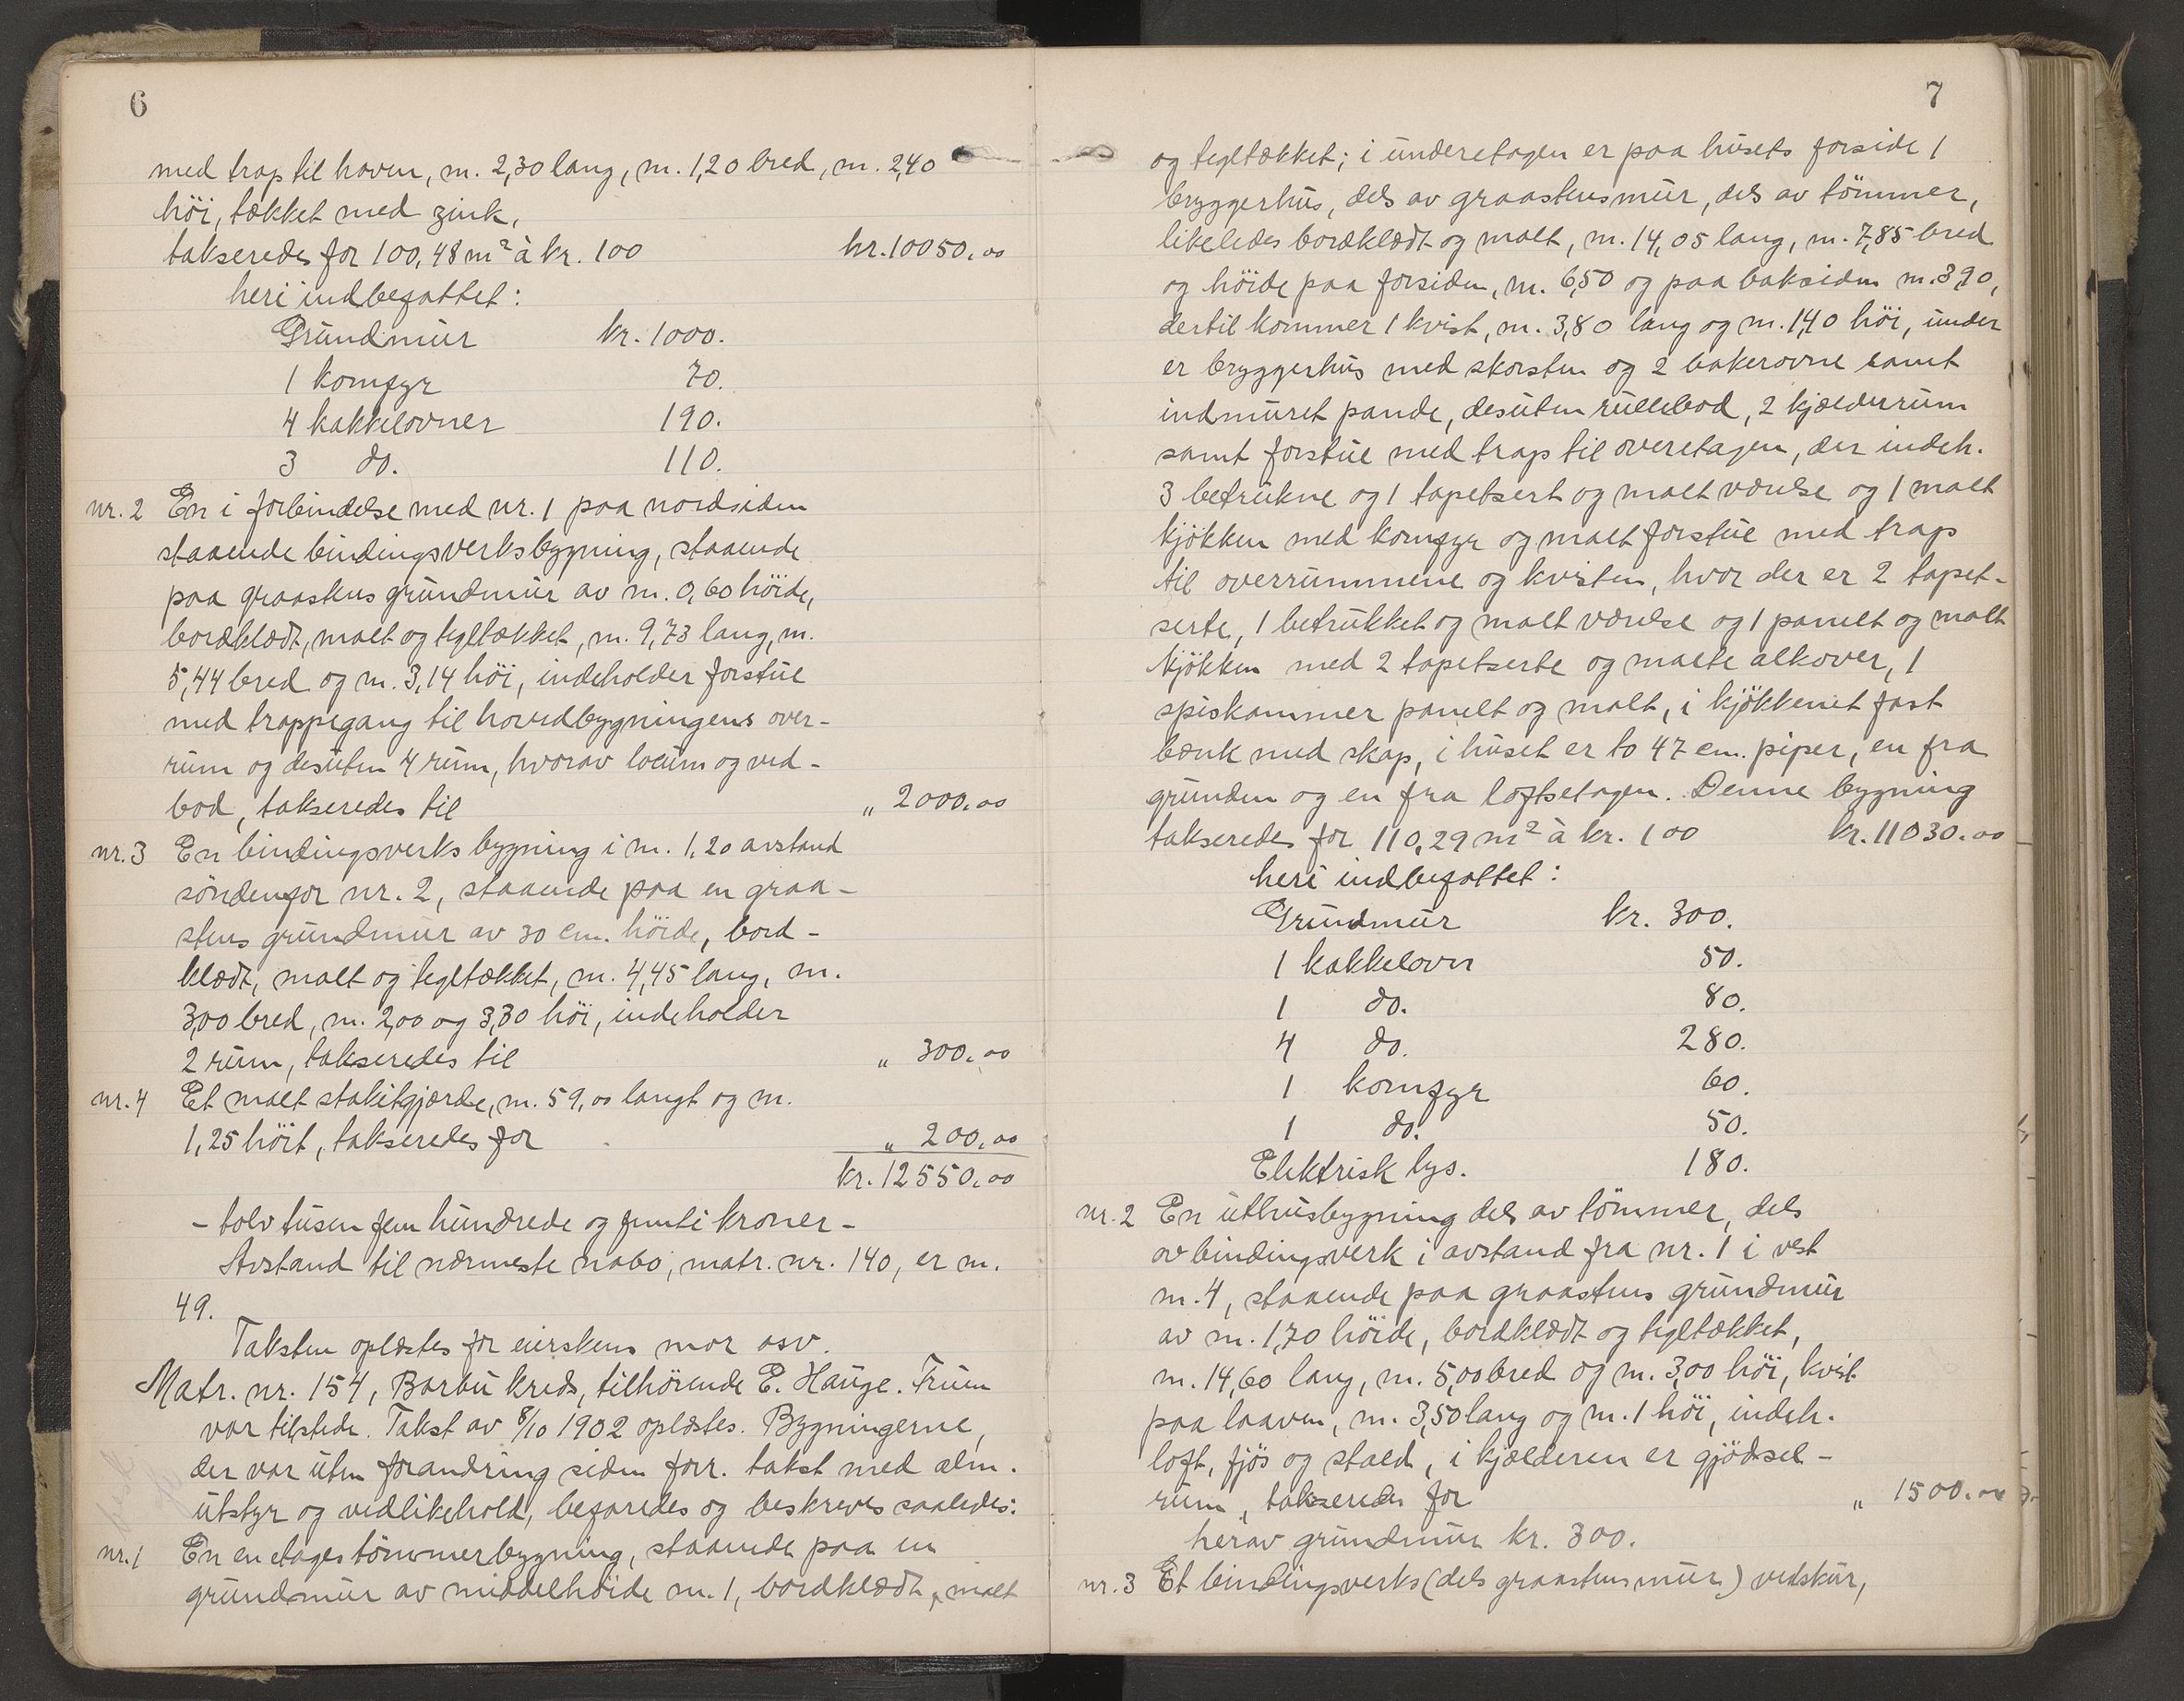 6
med trap til haven, m. 2,30 lang, m. 1,20 bred, m. 2,40
höi, tækket med zink,
takseredes for 100,48 m² à kr. 100 kr. 10050,00
heri indbefattet:
Grundmur kr. 1000.
1 komfyr 70.
4 kakkelovner 190.
3 do. 110.
nr. 2 En i forbindelse med nr. 1 paa nordsiden
staaende bindingsverksbygning, staaende
paa graastens grundmur av m. 0,60 höide,
bordklædt, malt og tegltækket, m. 9,73 lang, m.
5,44 bred og m. 3,14 höi, indeholder forstue
med trappegang til hovedbygningens over-
rum og desuten 4 rum, hvorav locum og ved-
bod, takseredes til „ 2000,00
nr. 3 En bindingsverks bygning i m. 1,20 avstand
søndenfor nr. 2, staaende paa en graa-
stens grundmur av 30 cm. höide, bord-
klædt, malt og tegltækket, m. 4,45 lang, m.
3,00 bred, m. 2,00 og 3,30 höi, indeholder
2 rum, takseredes til „ 300,00
nr. 4 Et malt stakitgjærde, m. 59,00 langt og m.
1,25 höit, takseredes for „ 200,00
kr. 12550,00
- tolv tusen fem hundrede og femti kroner -
Avstand til nærmeste nabo, matr. nr. 140, er m.
49.
Taksten oplæstes for eierskens mor osv.
Matr. nr. 154, Barbu kreds, tilhörende E. Hauge. Fruen
var tilstede. Takst av 8/10 1902 oplæstes. Bygningerne,
der var uten forandring siden forr. takst med alm.
utstyr og vedlikehold, befaredes og beskreves saaledes:
nr. 1 En en etages tömmerbygning, staaende paa en
grundmur av middelhöide m. 1, bordklædt, malt
7
og tegltækket; i underetagen er paa husets forside 1
bryggerhus, dels av graastensmur, dels av tömmer,
likeledes bordklædt og malt, m. 14,05 lang, m. 7,85 bred
og höide paa forsiden, m. 6,50 og paa baksiden m. 3,90,
dertil kommer 1 kvist, m. 3,80 lang og m. 1,40 höi, under
er bryggerhus med skorsten og 2 bakerovne samt
indmuret pande, desuten rullebod, 2 kjælderrum
samt forstue med trap til overetagen, der indeh.
3 betrukne og 1 tapetsert og malt værelse og 1 malt
kjökken med komfyr og malt forstue med trap
til overrummene og kvisten, hvor der er 2 tapet-
serte, 1 betrukket og malt værelse og 1 panelt og malt
kjökken med 2 tapetserte og malte alkover, 1
spiskammer panelt og malt, i kjökkenet fast
bænk med skap, i huset er to 47 cm. piper, en fra
grunden og en fra loftsetagen. Denne bygning
takseredes for 110,29 m² à kr. 100 kr. 11030,00
heri indbefattet:
Grundmur kr. 300.
1 kakkelovn 50.
1 do. 80.
4 do. 280.
1 komfyr 60.
1 do. 50.
Elektrisk lys. 180.
nr. 2 En uthusbygning dels av tömmer, dels
av bindingsverk i avstand fra nr. 1 i vest
m. 4, staaende paa graastens grundmur
av m. 1,70 höide, bordklædt og tegltækket,
m. 14,60 lang, m. 5,00 bred og m. 3,00 höi, kvist
paa laaven, m. 3,50 lang og m. 1 höi, indeh.
loft, fjös og stald, i kjælderen er gjödsel-
rum, takseredes for „ 1500,00
herav grundmur kr. 300.
nr. 3 Et bindingsverks (dels graastensmur) vedskur,